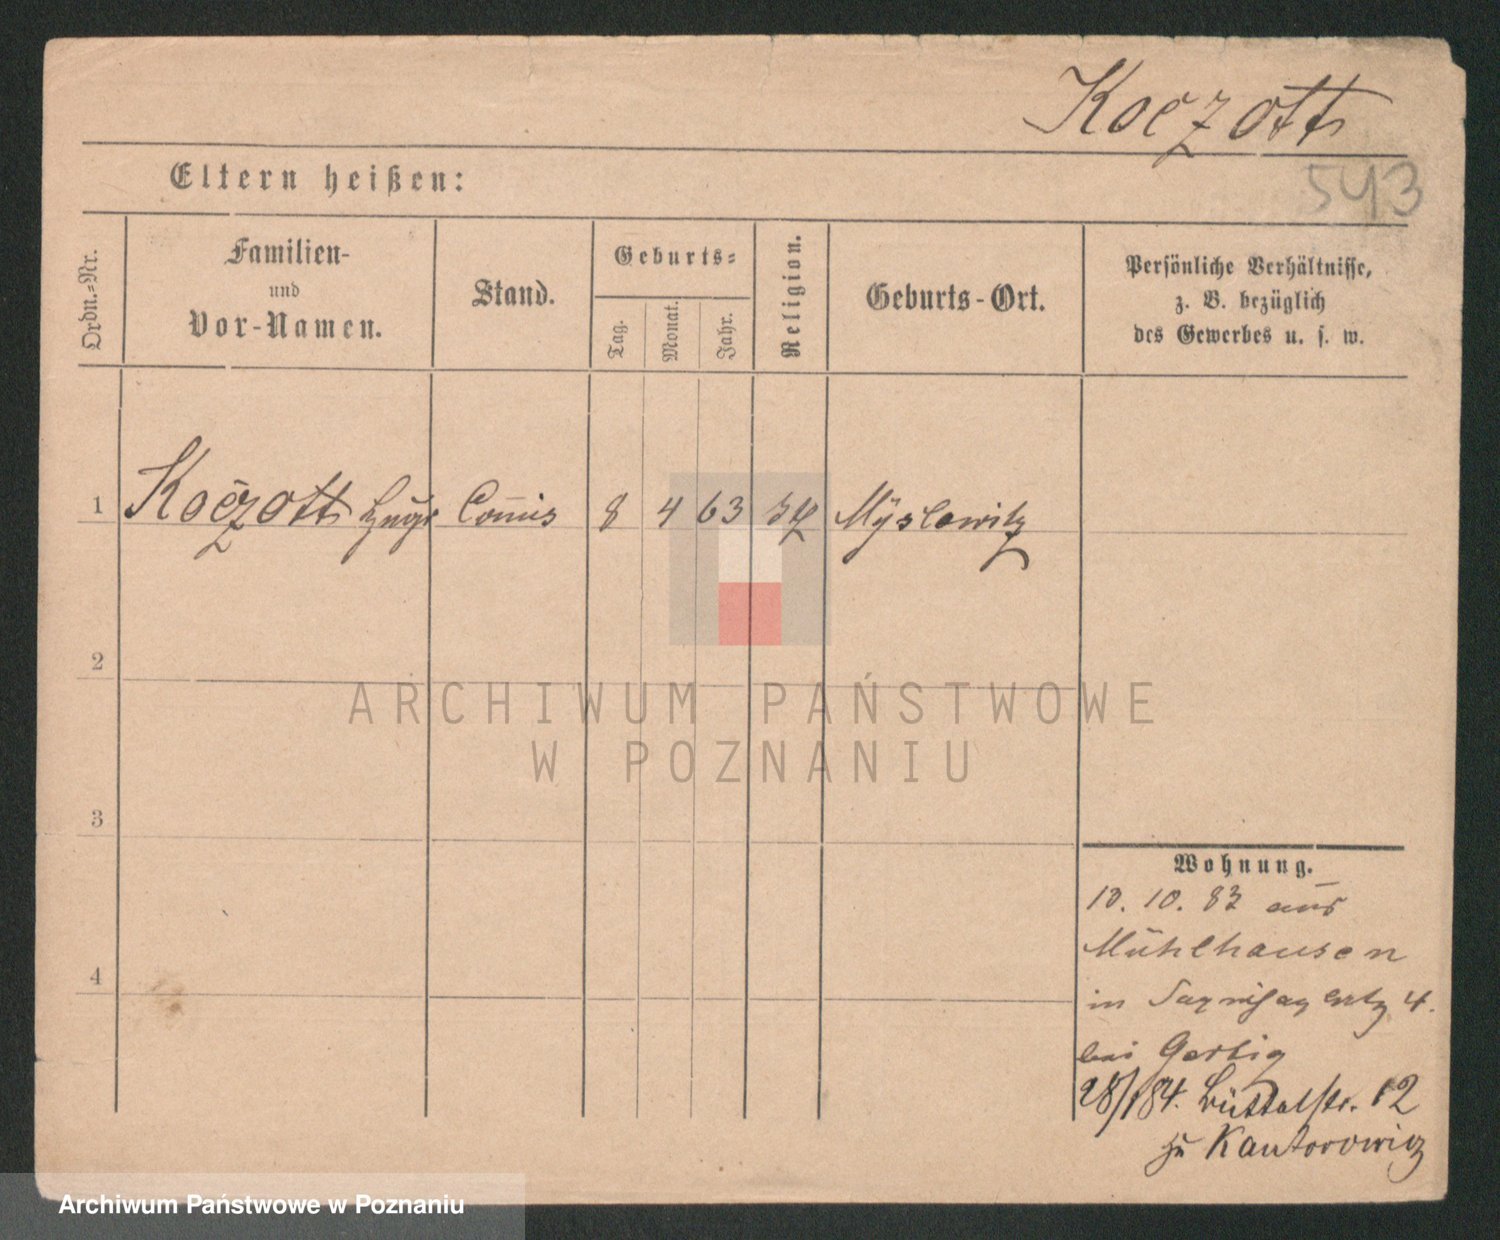 Koczott
Eltern heißen:
543
Ordn.-Nr.
Familien-
und
Vor-Namen.
Stand.
Geburts-
Tag.
Monat.
Jahr.
Religion.
Geburts-Ort.
Persönliche Verhältnisse,
z. B. bezüglich
des Gewerbes u. s. w.
1 Koczott Hugo Com̄is 8 4 63 Myslowitz
2
ARCHIWUM PAŃSTWOWE
W POZNANIU
3
Wohnung.
10. 83 aus
Mühlhausen
4
in 4.
bei Gerbig
28/1 84. Büttelstr. 12
zu Kantorowicz
Archiwum Państwowe w Poznaniu